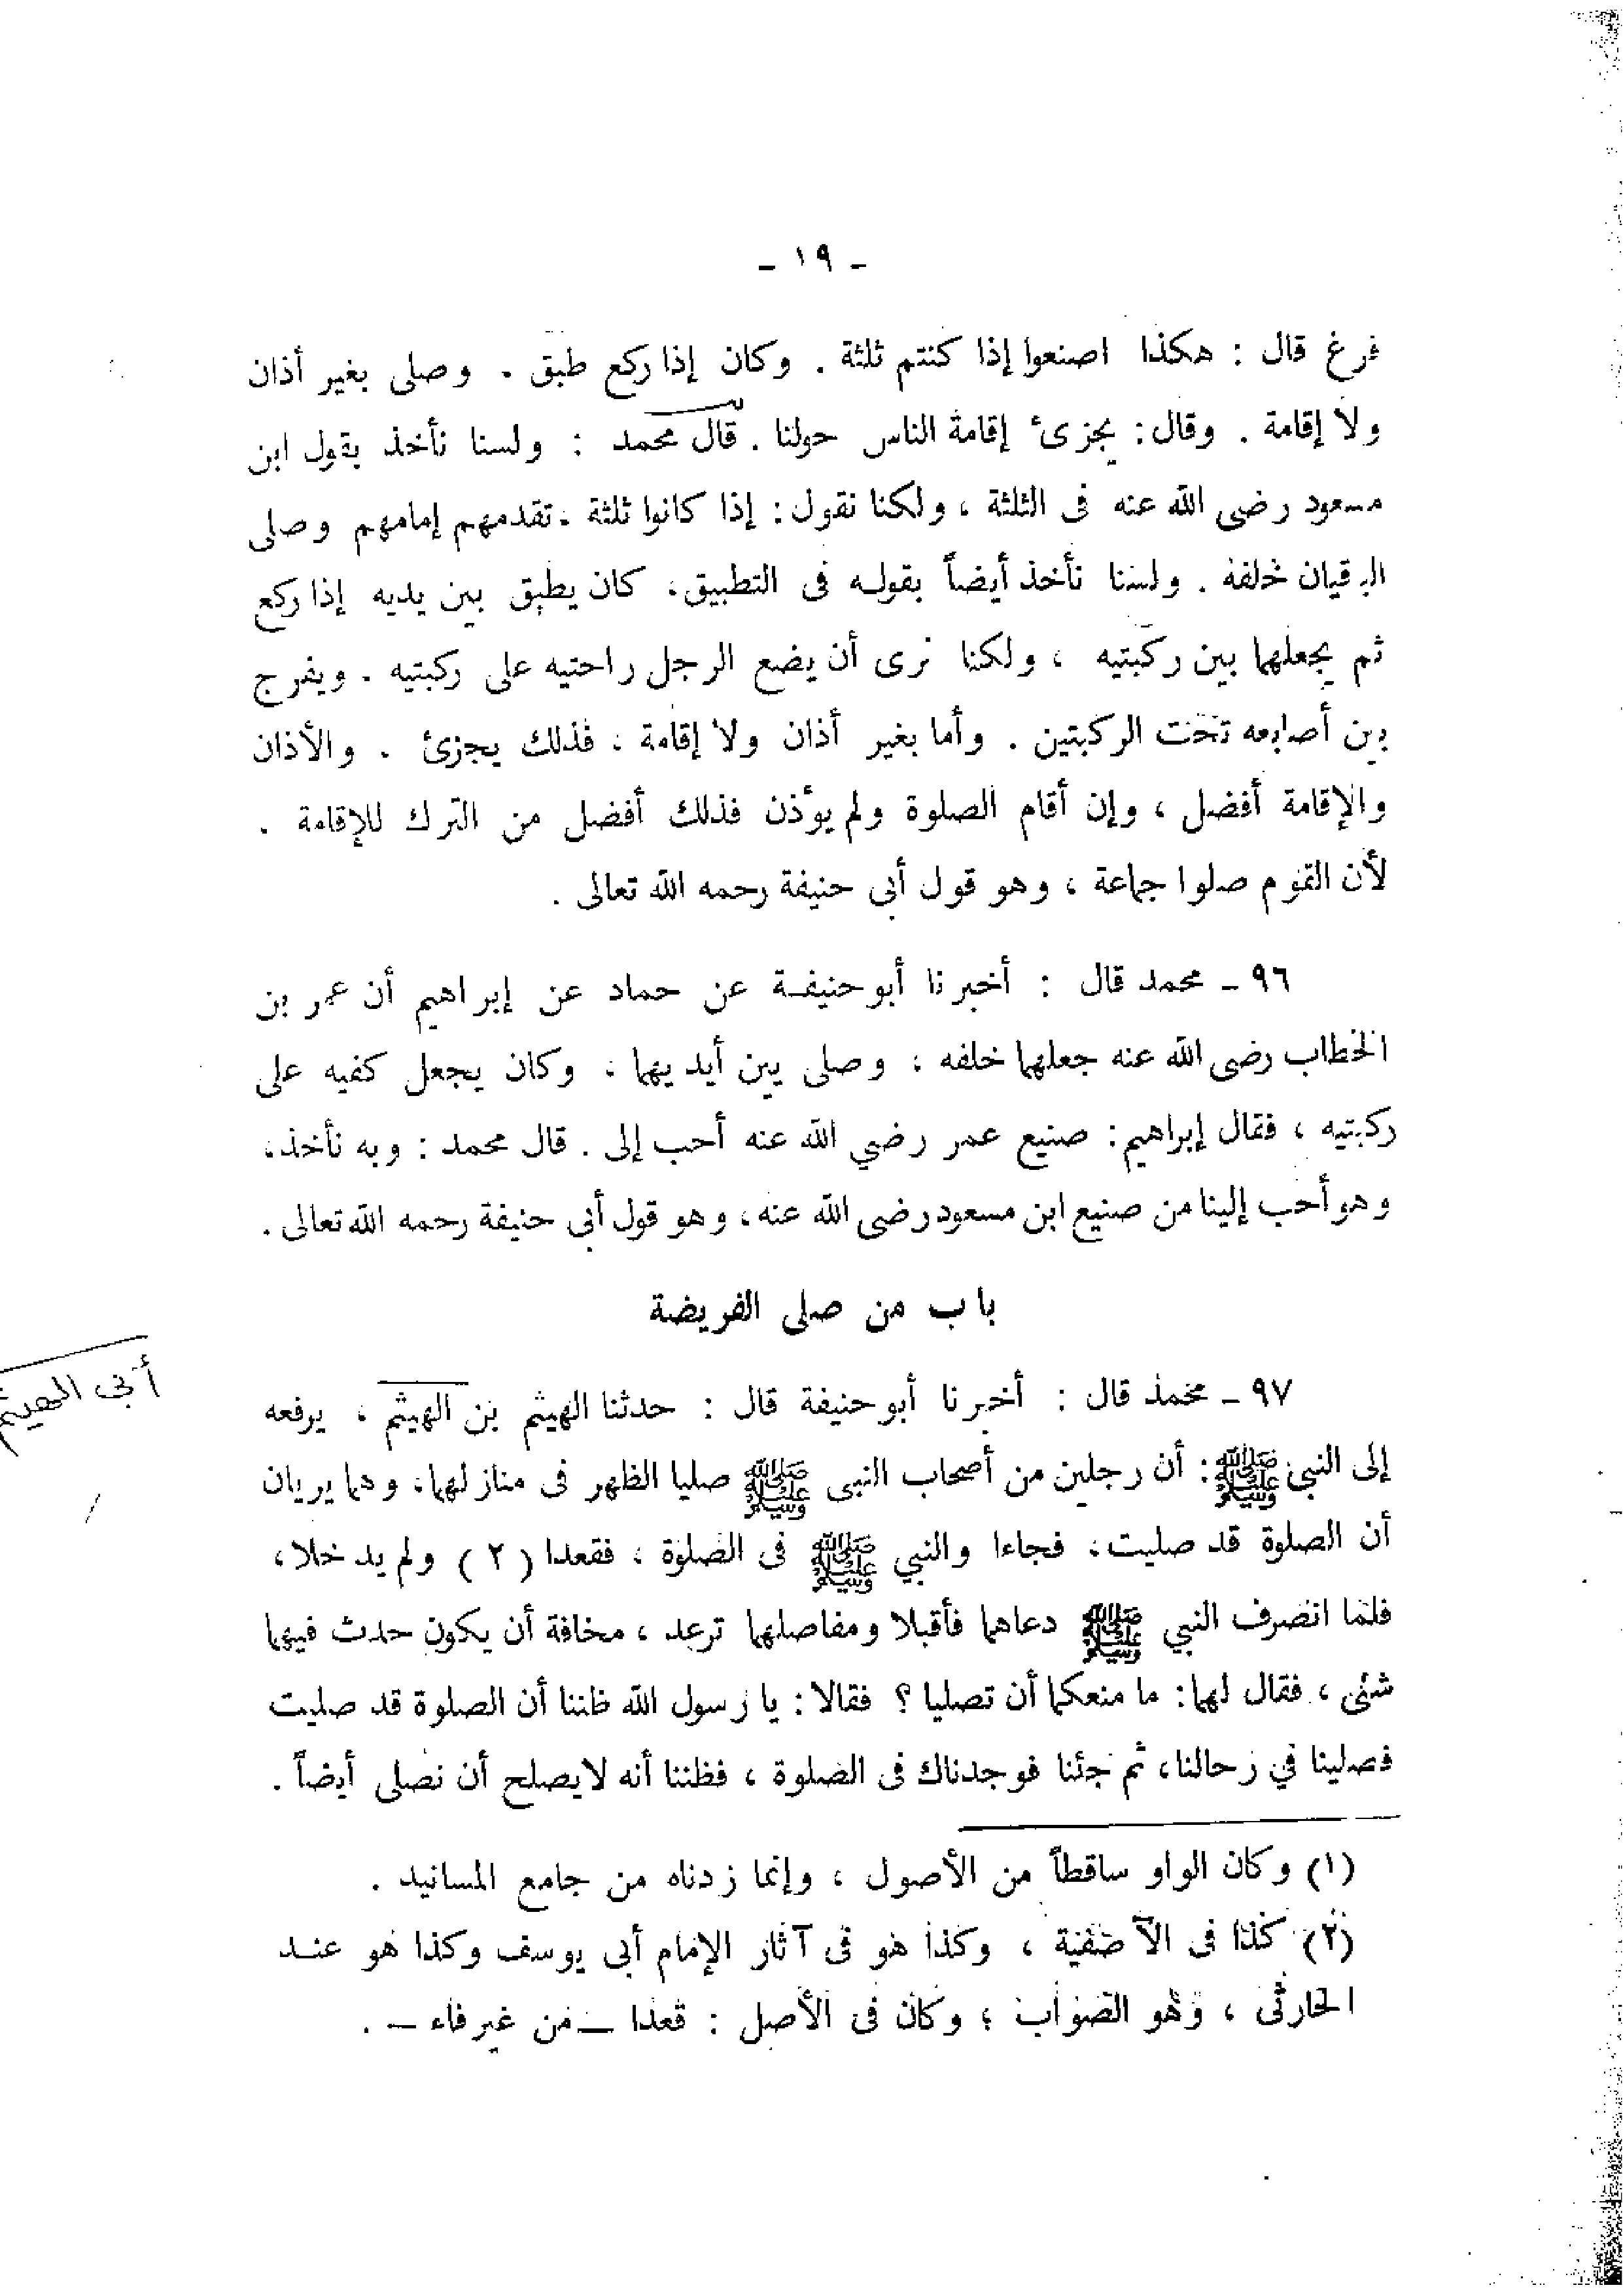 - ١٩ -
فرغ قال : هكذا اصنعوا إذا كنتم ثلثة . وكان إذا ركع طبق . وصلى بغير أذان
ولا إقامة . وقال : يجزئ إقامة الناس حولنا . قال محمد : ولسنا نأخذ بقول ابن
مسعود رضى الله عنه فى الثلثة ، ولكنا نقول : إذا كانوا ثلثة ، تقدمهم إمامهم وصلى
الباقيان خلفه . ولسنا نأخذ أيضاً بقوله فى التطبيق ، كان يطبق بين يديه إذا ركع
ثم يجعلهما بين ركبتيه ، ولكنا نرى أن يضع الرجل راحتيه على ركبتيه . ويفرج
بين أصابعه تحت الركبتين . وأما بغير أذان ولا إقامة ، فذلك يجزئ . والأذان
والإقامة أفضل ، وإن أقام الصلوة ولم يؤذن فذلك أفضل من الترك للإقامة .
لأن القوم صلوا جماعة ، وهو قول أبى حنيفة رحمه الله تعالى .
٩٦ - محمد قال : أخبرنا أبو حنيفة عن حماد عن إبراهيم أن عمر بن
الخطاب رضى الله عنه جعلهما خلفه ؛ وصلى بين أيديهما ؛ وكان يجعل كفيه على
ركبتيه ، فقال إبراهيم : صنيع عمر رضي الله عنه أحب إلى . قال محمد : وبه نأخذ ،
وهو أحب إلينا من صنيع ابن مسعود رضى الله عنه ، وهو قول أبى حنيفة رحمه الله تعالى .
باب من صلى الفريضة
أبى الهيثم
٩٧ - محمد قال : أخبرنا أبو حنيفة قال : حدثنا الهيثم بن الهيثم ، يرفعه
إلى النبي ﷺ : أن رجلين من أصحاب النبى ﷺ صليا الظهر فى منازلهما ، وهما يريان
أن الصلوة قد صليت ، فجاءا والنبي ﷺ فى الصلوة ، فقعدا (٢) ولم يدخلا ،
فلما انصرف النبي ﷺ دعاهما فأقبلا ومفاصلهما ترعد ، مخافة أن يكون حدث فيهما
شئى ، فقال لهما : ما منعكما أن تصليا ؟ فقالا : يا رسول الله ظننا أن الصلوة قد صليت
فصلينا في رحالنا ، ثم جئنا فوجدناك فى الصلوة ، فظننا أنه لا يصلح أن نصلى أيضاً .
(١) وكان الواو ساقطاً من الأصول ، وإنما زدناه من جامع المسانيد .
(٢) كذا فى الآصفية ، وكذا هو فى آثار الإمام أبى يوسف وكذا هو عند
الحارثى ، وهو الصواب ؛ وكان فى الأصل : قعدا – من غير فاء – .